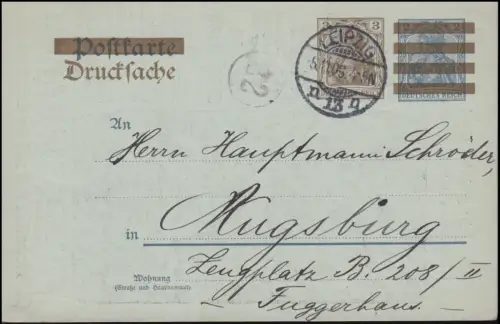 Postkarte
Drucksache
3 3
LEIPZIG
13
DEUTSCHES REICH
An
Herrn Hauptmann Schröder,
in Augsburg
Zeugplatz B. 208/II
Wohnung
(Straße und Hausnummer)
- Fuggerhaus -